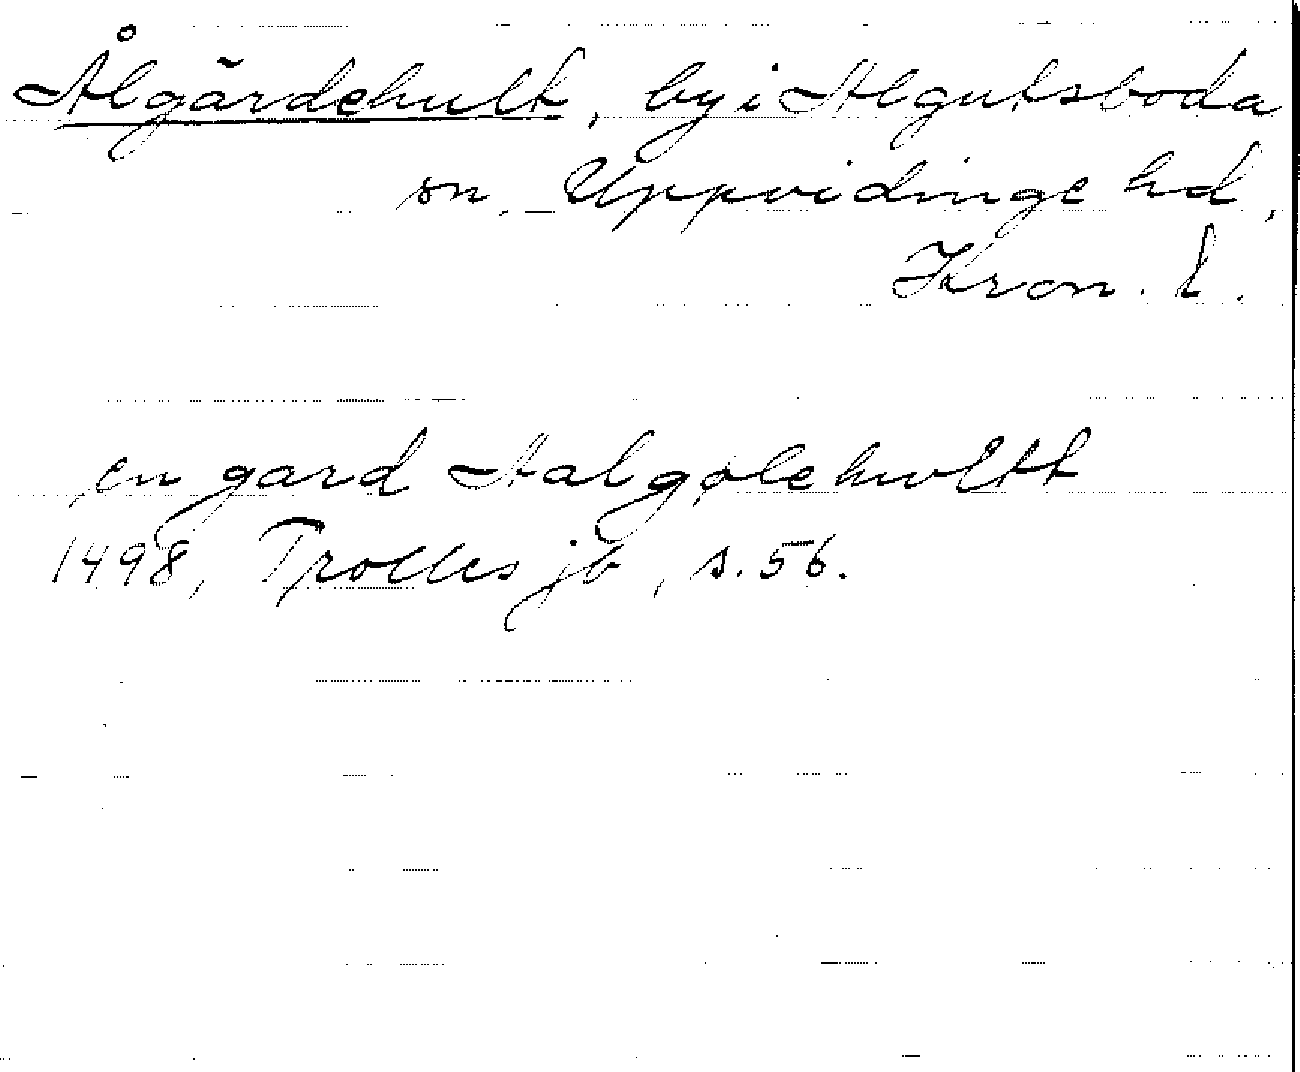 Ålgärdehult, by i Algutsboda
sn, Uppvidinge hd,
Kron. l.
en gard Aalgølehwltt
1498, Trolles jb, s. 56.